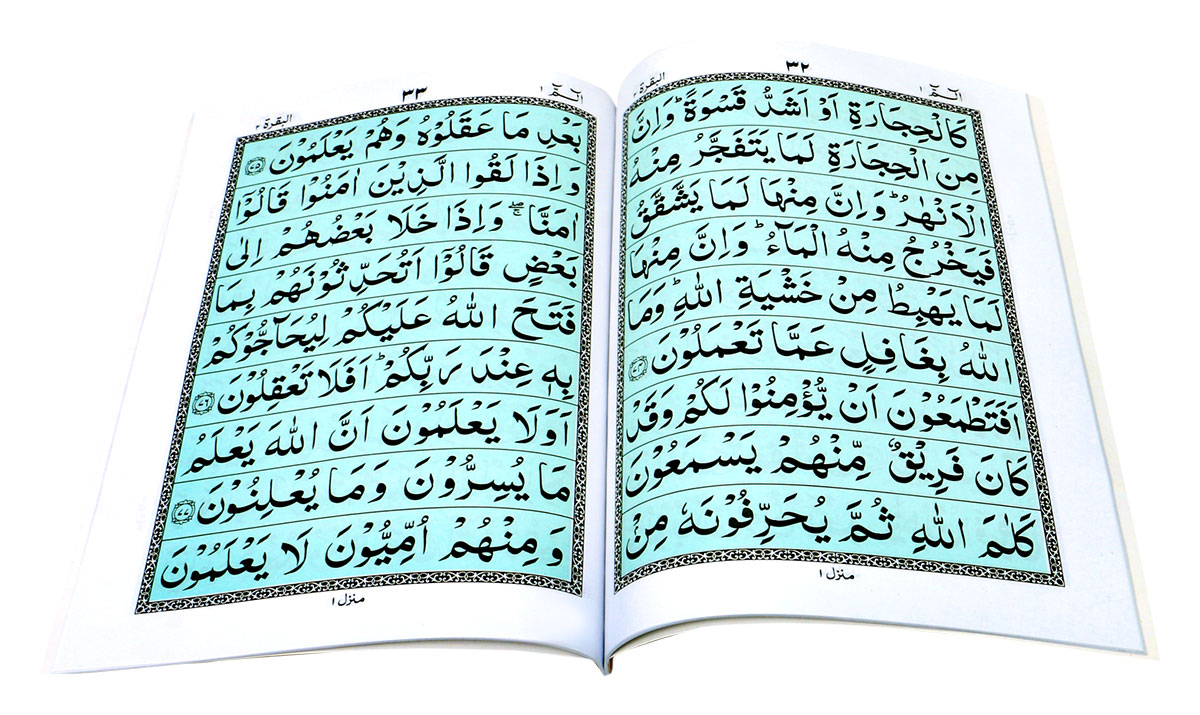 الٓمّٓ ١
٣٢
البقرة ٢
كَالْحِجَارَةِ اَوْ اَشَدُّ قَسْوَةً ؕ وَاِنَّ
مِنَ الْحِجَارَةِ لَمَا يَتَفَجَّرُ مِنْهُ
الْاَنْهٰرُ ؕ وَاِنَّ مِنْهَا لَمَا يَشَّقَّقُ
فَيَخْرُجُ مِنْهُ الْمَآءُ ؕ وَاِنَّ مِنْهَا
لَمَا يَهْبِطُ مِنْ خَشْيَةِ اللّٰهِ ؕ وَمَا
اللّٰهُ بِغَافِلٍ عَمَّا تَعْمَلُوْنَ ﴿٧٤﴾
اَفَتَطْمَعُوْنَ اَنْ يُّؤْمِنُوْا لَكُمْ وَقَدْ
كَانَ فَرِيْقٌ مِّنْهُمْ يَسْمَعُوْنَ
كَلٰمَ اللّٰهِ ثُمَّ يُحَرِّفُوْنَهٗ مِنْۢ
منزل ١
الٓمّٓ ١
٣٣
البقرة ٢
بَعْدِ مَا عَقَلُوْهُ وَهُمْ يَعْلَمُوْنَ ﴿٧٥﴾
وَاِذَا لَقُوا الَّذِيْنَ اٰمَنُوْا قَالُوْٓا
اٰمَنَّا ۖۚ وَاِذَا خَلَا بَعْضُهُمْ اِلٰى
بَعْضٍ قَالُوْٓا اَتُحَدِّثُوْنَهُمْ بِمَا
فَتَحَ اللّٰهُ عَلَيْكُمْ لِيُحَآجُّوْكُمْ
بِهٖ عِنْدَ رَبِّكُمْ ؕ اَفَلَا تَعْقِلُوْنَ ﴿٧٦﴾
اَوَلَا يَعْلَمُوْنَ اَنَّ اللّٰهَ يَعْلَمُ
مَا يُسِرُّوْنَ وَمَا يُعْلِنُوْنَ ﴿٧٧﴾
وَمِنْهُمْ اُمِّيُّوْنَ لَا يَعْلَمُوْنَ
منزل ١